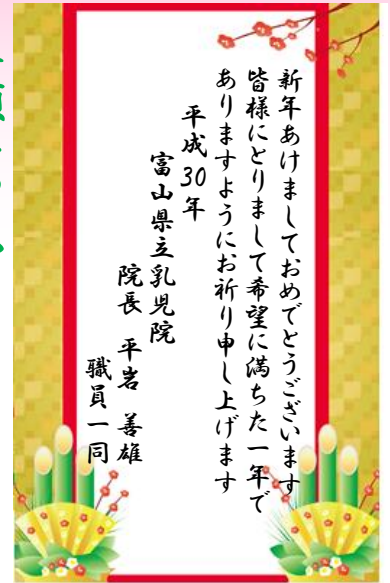 新年あけましておめでとうございます
皆様にとりまして希望に満ちた一年で
ありますようにお祈り申し上げます
平成30年
富山県立乳児院
院長 平岩 善雄
職員一同